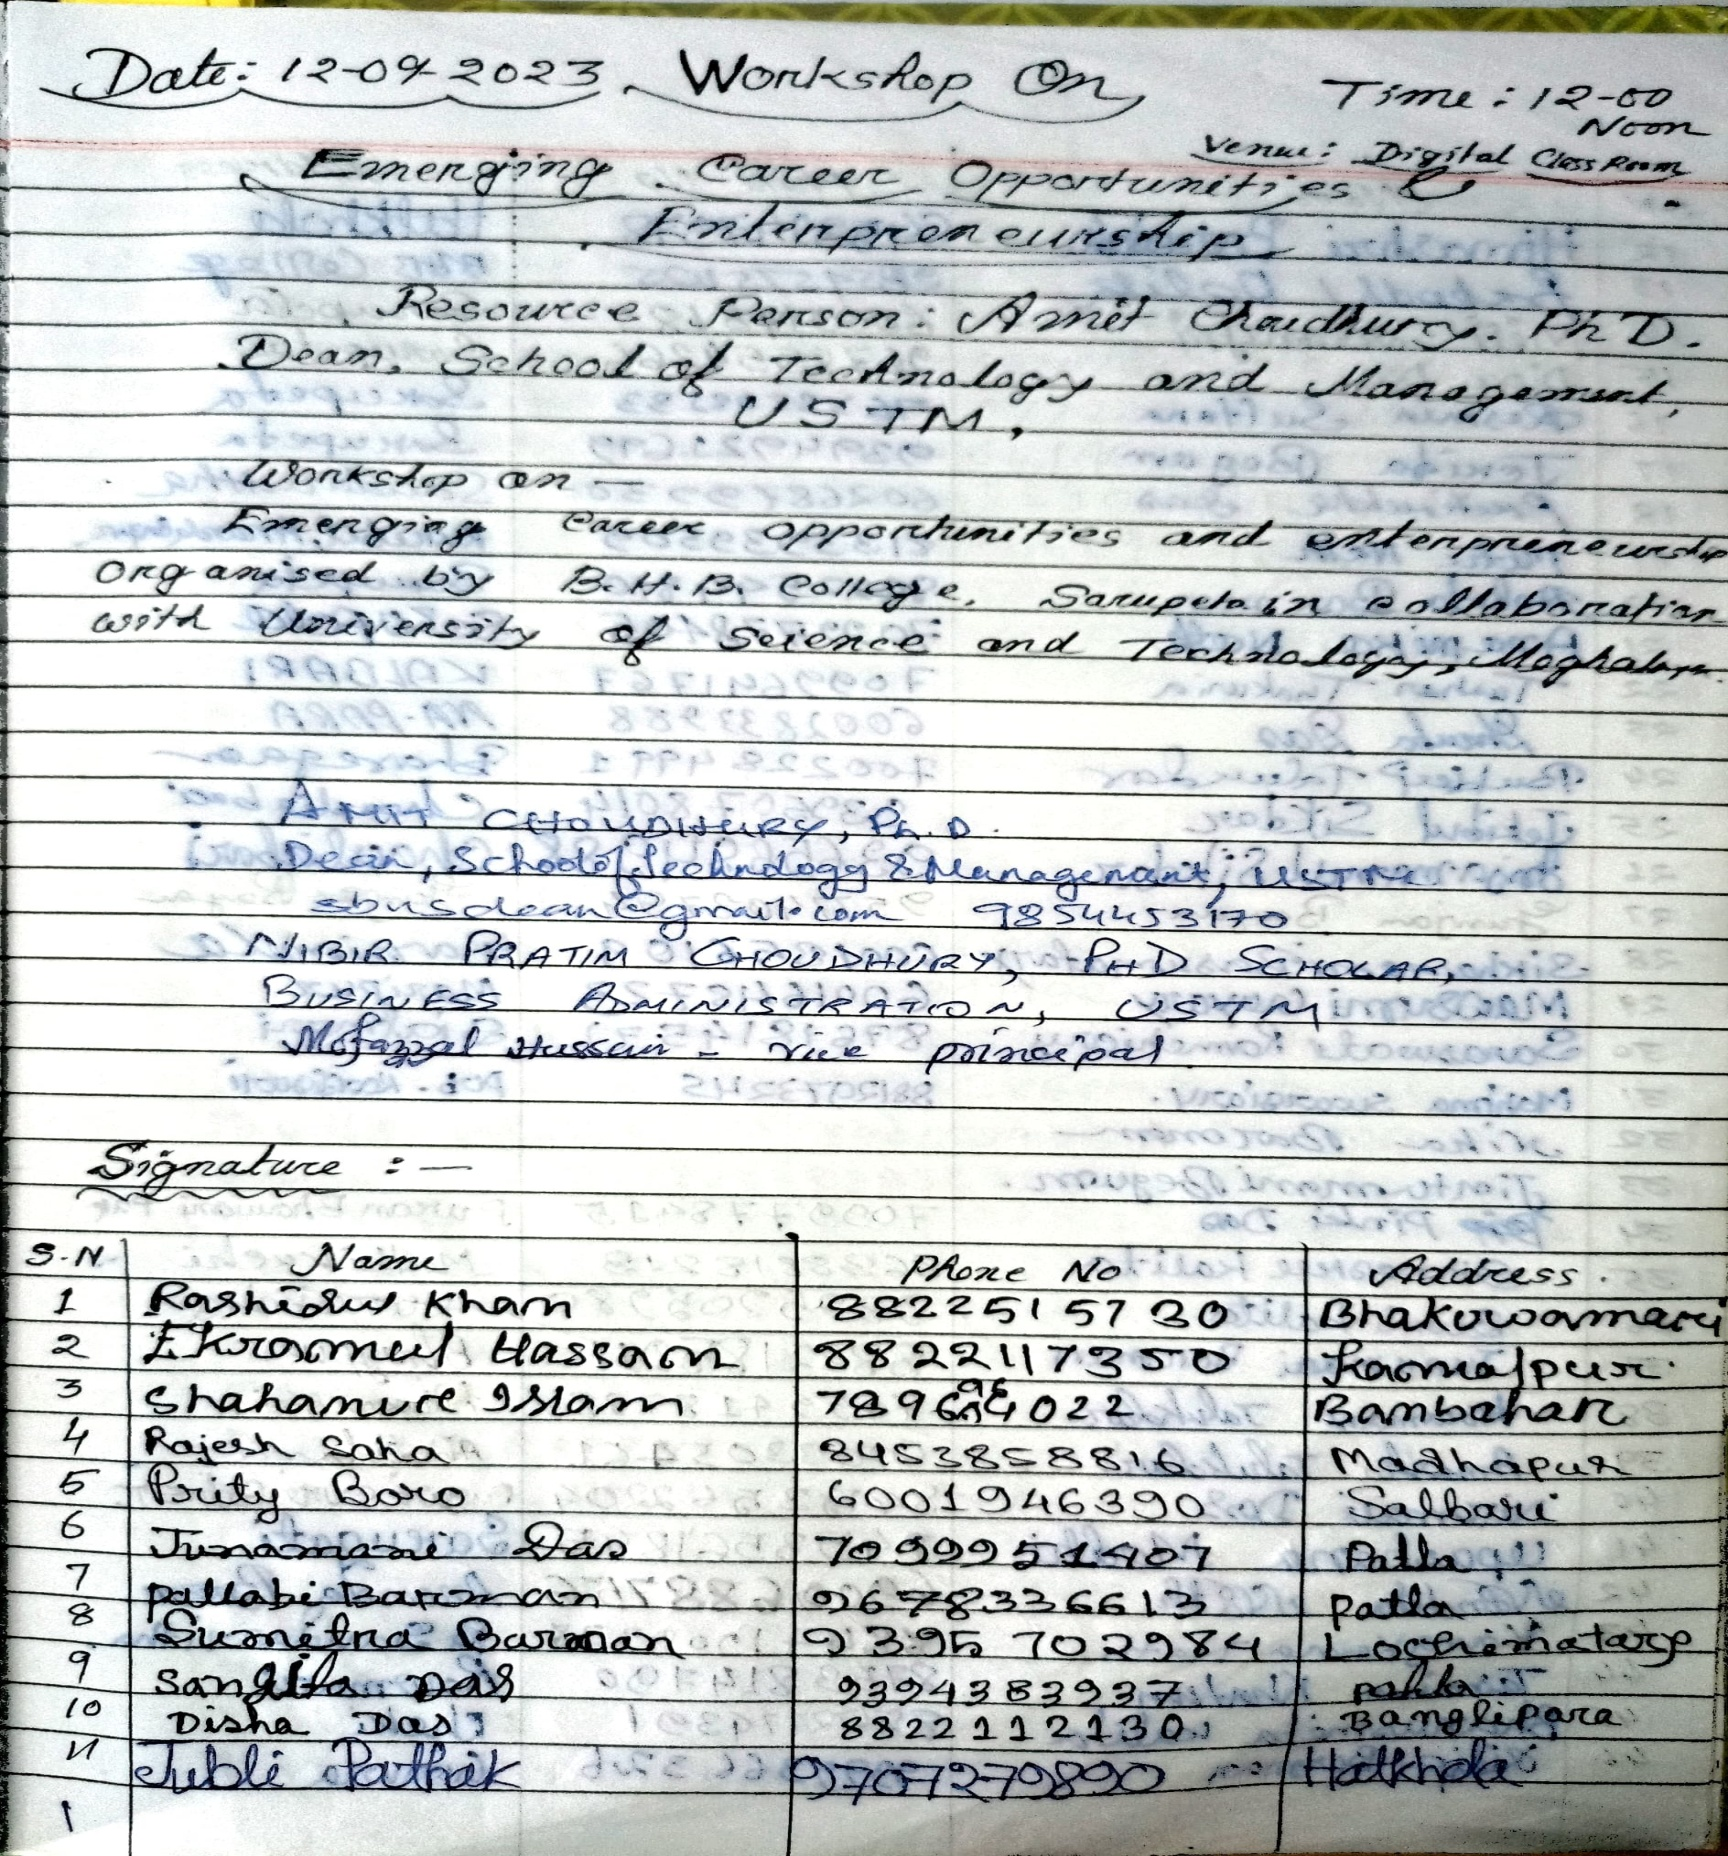 Date: 12-09-2023 Workshop On
Time: 12-00
Noon
Venue: Digital Class Room
Emerging Career Opportunities &
Enterpreneurship
Resource Person: Amit Choudhury. Ph D.
Dean, School of Technology and Management,
USTM,
Workshop on —
Emerging Career opportunities and enterpreneurship
organised by B.H.B. College, Sarupeta in collaboration
with University of Science and Technology, Meghalaya.
AMIT CHOUDHURY, Ph.D.
Dean, School of Technology & Management, USTM
sbusdean@gmail.com 9854453170
NIBIR PRATIM CHOUDHURY, PHD SCHOLAR,
BUSINESS ADMINISTRATION, USTM
Mofazzal Hussain - vice principal
Signature :—
S.N Name Phone No Address.
1 Rashidul Khan 8822515730 Bhakuwamari
2 Ekramul Hassan 8822117350 Kamalpur
3 Shahanure Islam 022 Bambahar
4 Rajesh Saha 8453858816 Madhapur
5 Prity Boro 6001946390 Salbari
6 Junamani Das 7099951407 Patla
7 Pallabi Barman 9678336613 patla
8 Sumitra Barman 9395702984
9 Sangita Das 9394383937 pahla
10 Disha Das 8822112130 Banglipara
11 Jubli Pathak 9707279890 Hatkhola
1